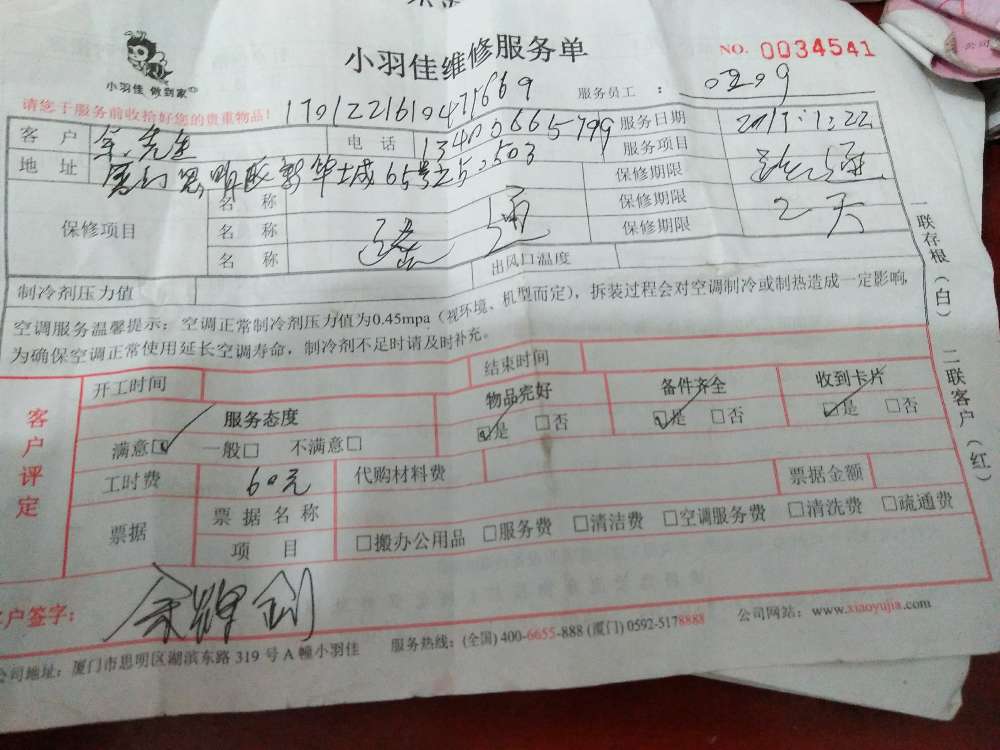 小羽佳维修服务单
NO. 0034541
小羽佳 做到家
请您于服务前收拾好您的贵重物品!
服务员工 :
客 户 余先生 电 话 13400665799 服务日期
地 址 厦门思明区新华城65号之5.503 服务项目 疏通
保修项目 名 称 保修期限
名 称 疏通 保修期限 2天
名 称 保修期限
制冷剂压力值 出风口温度
空调服务温馨提示: 空调正常制冷剂压力值为0.45mpa (视环境、机型而定), 拆装过程会对空调制冷或制热造成一定影响,
为确保空调正常使用延长空调寿命, 制冷剂不足时请及时补充。
一联存根(白) 二联客户(红)
客户评定
开工时间 结束时间
服务态度 物品完好 备件齐全 收到卡片
满意☑ 一般□ 不满意□ ☑是 □否 ☑是 □否 ☑是 □否
工时费 60元 代购材料费 票据金额
票据 票据名称
项 目 □搬办公用品 □服务费 □清洁费 □空调服务费 □清洗费 □疏通费
户签字:
公司地址: 厦门市思明区湖滨东路 319 号 A 幢小羽佳 服务热线: (全国) 400-6655-888 (厦门) 0592-5178888 公司网站: www.xiaoyujia.com